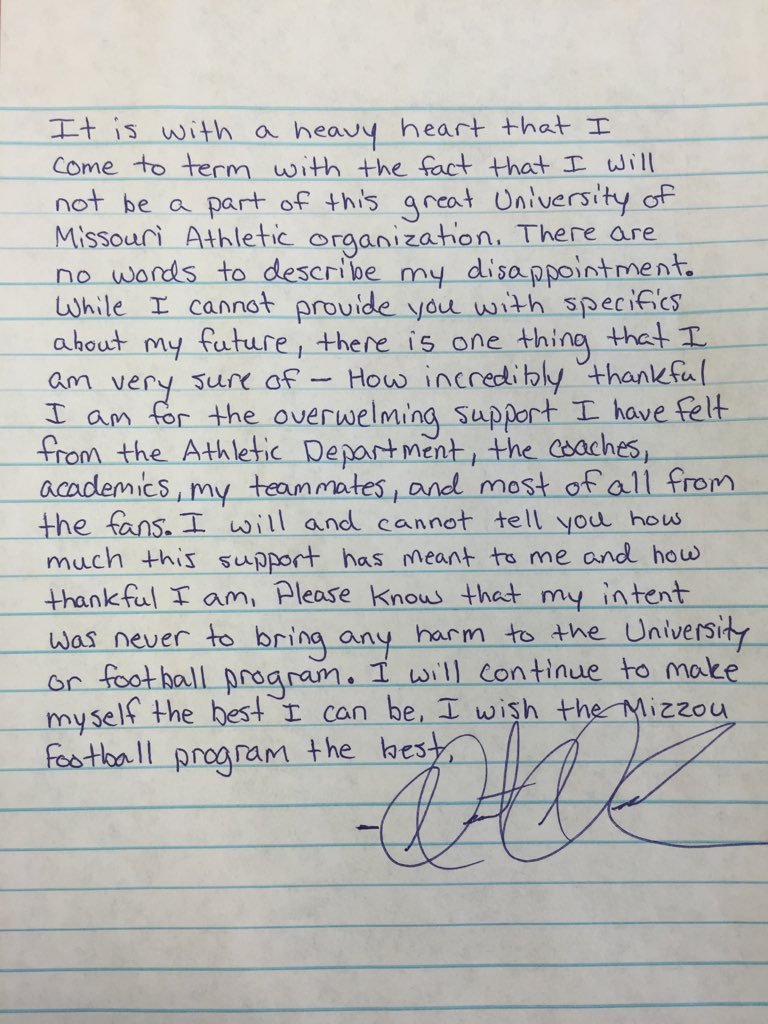 It is with a heavy heart that I
come to term with the fact that I will
not be a part of this great University of
Missouri Athletic organization. There are
no words to describe my disappointment.
While I cannot provide you with specifics
about my future, there is one thing that I
am very sure of - How incredibly thankful
I am for the overwelming support I have felt
from the Athletic Department, the coaches,
academics, my teammates, and most of all from
the fans. I will and cannot tell you how
much this support has meant to me and how
thankful I am. Please know that my intent
was never to bring any harm to the University
or football program. I will continue to make
myself the best I can be. I wish the Mizzou
football program the best.